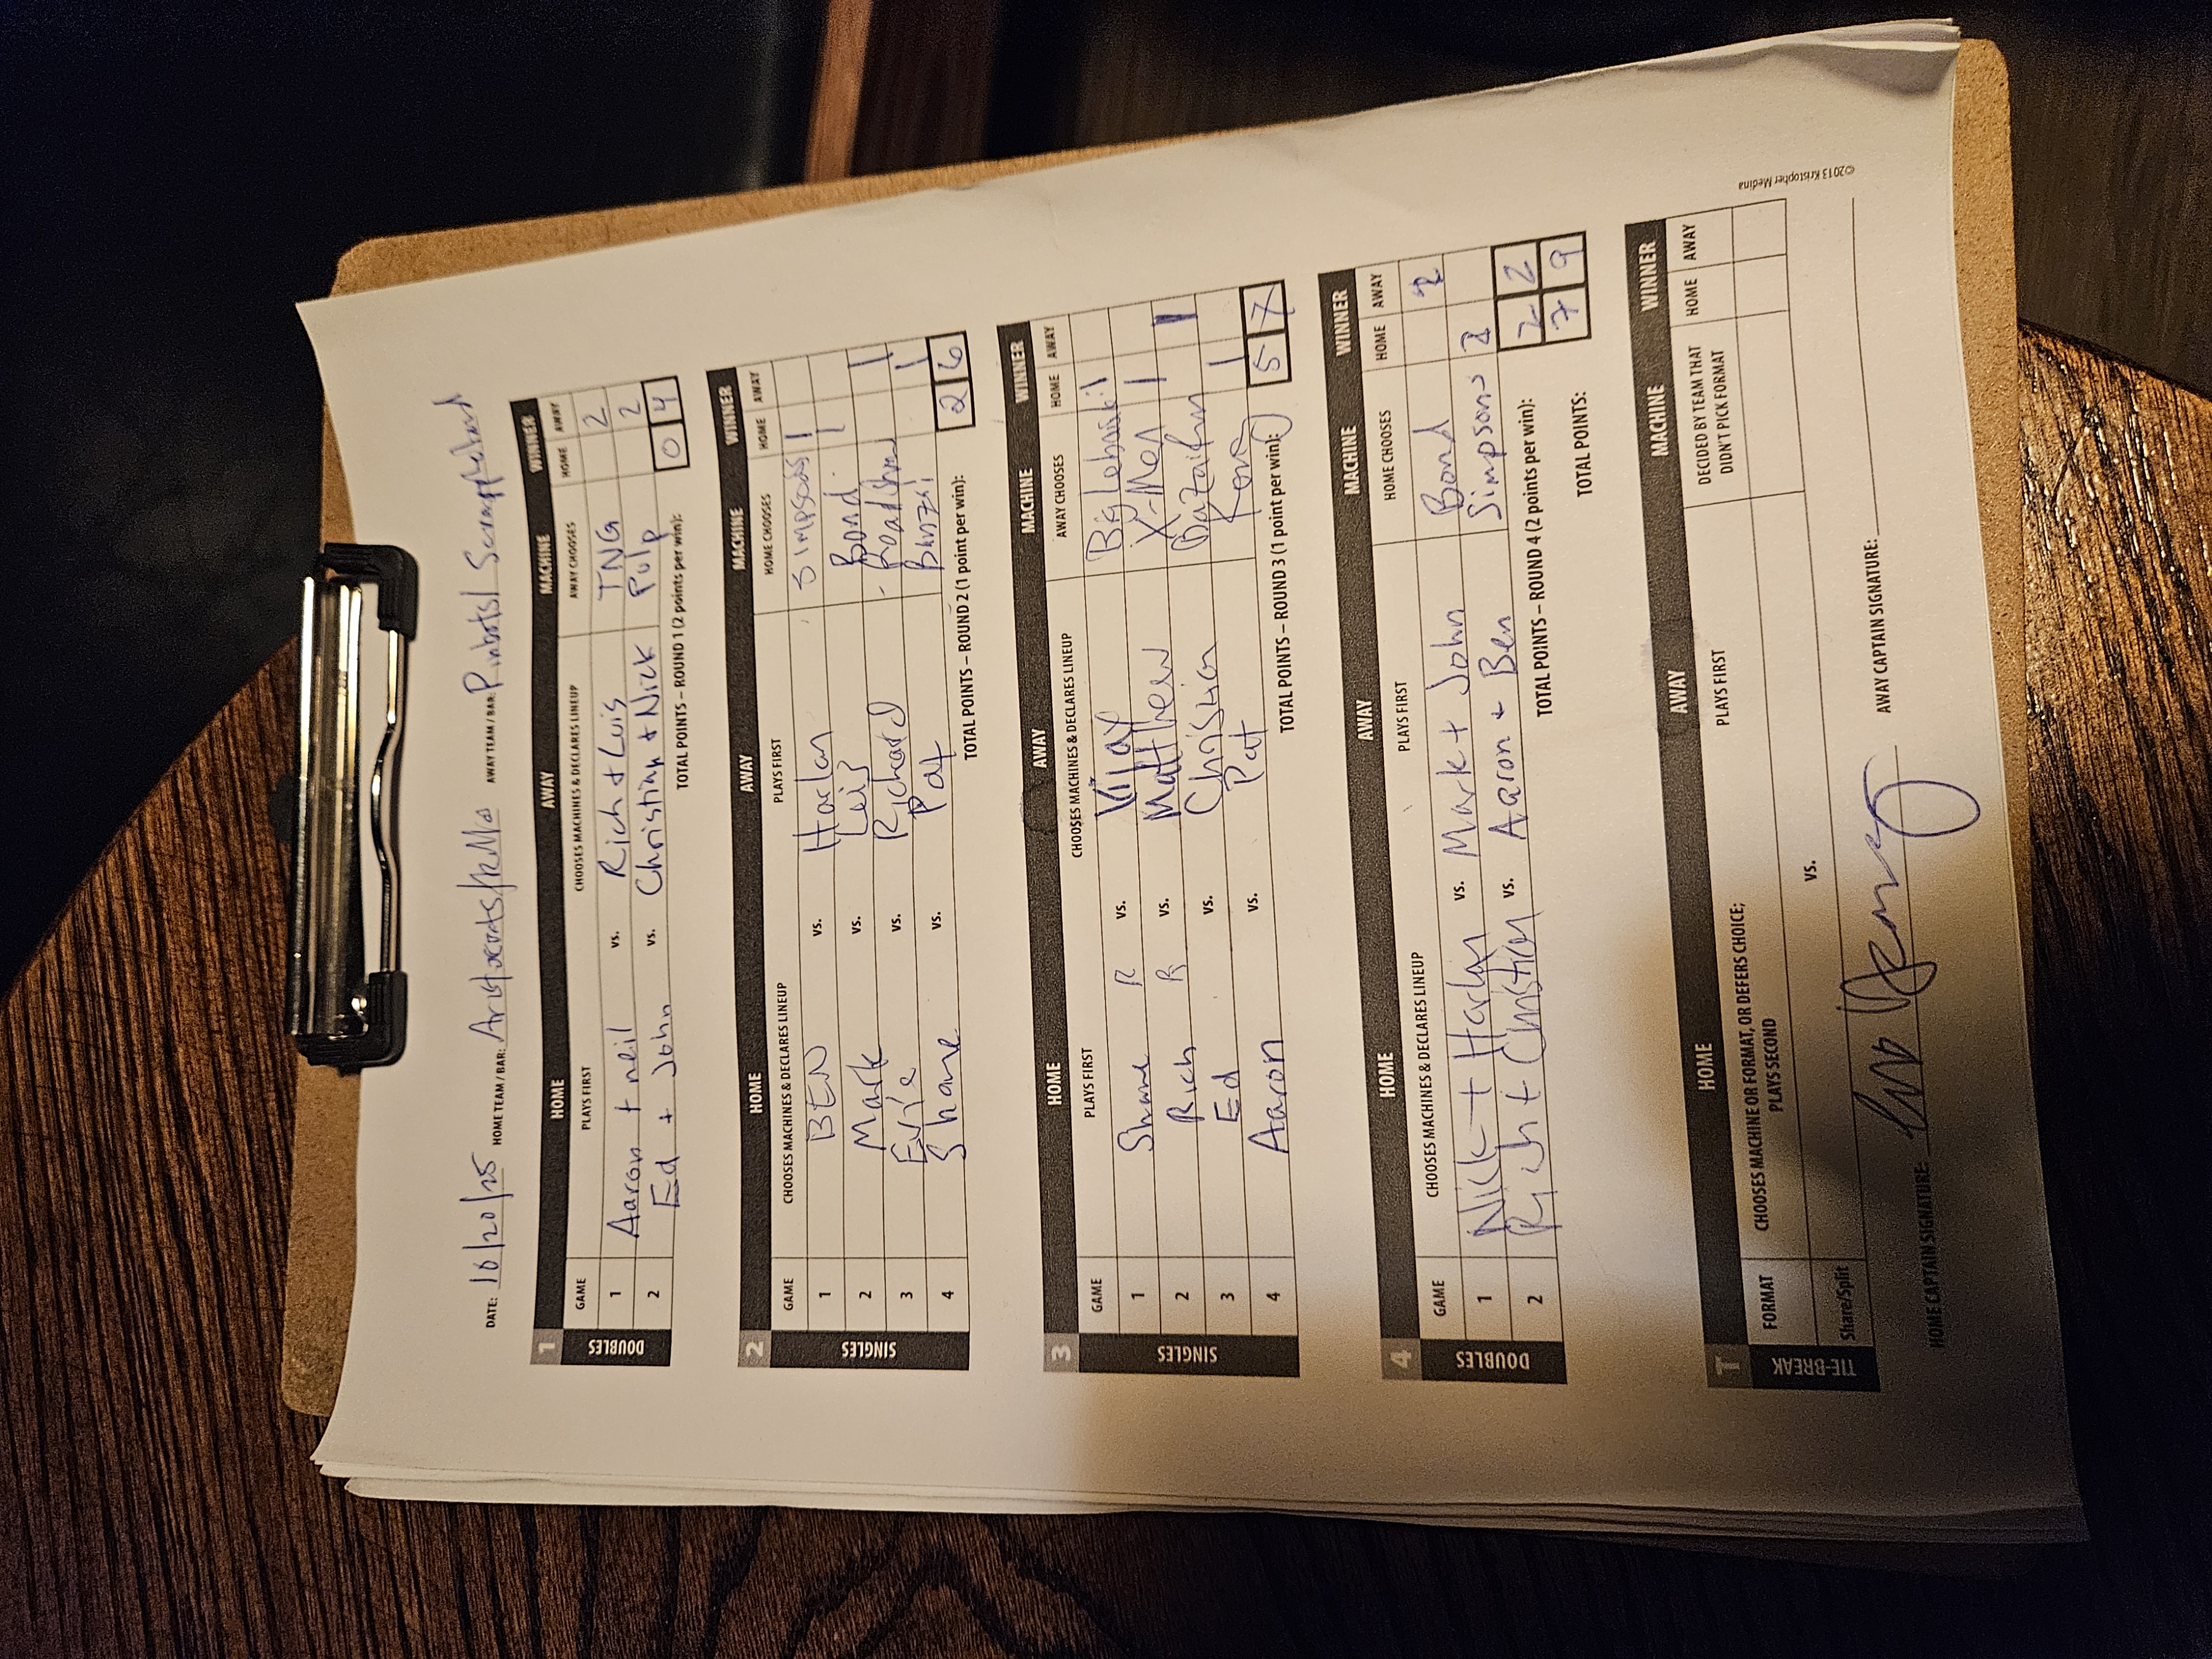 DATE: 10/20/25 HOME TEAM / BAR: Aristocrats/ AWAY TEAM / BAR: Pinbots/ Scrapplehead
1 HOME AWAY MACHINE WINNER
GAME PLAYS FIRST CHOOSES MACHINES & DECLARES LINEUP AWAY CHOOSES HOME AWAY
DOUBLES
1 Aaron + neil vs. Rich + Luis TNG 2
2 Ed + John vs. Christian + Nick Pulp 2
TOTAL POINTS – ROUND 1 (2 points per win): 0 4
2 HOME AWAY MACHINE WINNER
GAME CHOOSES MACHINES & DECLARES LINEUP PLAYS FIRST HOME CHOOSES HOME AWAY
SINGLES
1 BEN vs. Harlan Simpsons 1
2 Mark vs. Luis Bond 1
3 Evie vs. Richard Roadshow 1
4 Shane vs. Pat Banzai 1
TOTAL POINTS – ROUND 2 (1 point per win): 2 6
3 HOME AWAY MACHINE WINNER
GAME PLAYS FIRST CHOOSES MACHINES & DECLARES LINEUP AWAY CHOOSES HOME AWAY
SINGLES
1 Shane R vs. Vijay Big Lebowski 1
2 Rich R vs. Matthew X-Men 1
3 Ed vs. Christian 1
4 Aaron vs. Pat 1
TOTAL POINTS – ROUND 3 (1 point per win): 5 7
4 HOME AWAY MACHINE WINNER
GAME CHOOSES MACHINES & DECLARES LINEUP PLAYS FIRST HOME CHOOSES HOME AWAY
DOUBLES
1 Nick + Harlan vs. Mark + John Bond 2
2 Rich + Christian vs. Aaron + Ben Simpsons 2
TOTAL POINTS – ROUND 4 (2 points per win): 2 2
TOTAL POINTS: 7 9
T HOME AWAY MACHINE WINNER
FORMAT CHOOSES MACHINE OR FORMAT, OR DEFERS CHOICE; PLAYS SECOND PLAYS FIRST DECIDED BY TEAM THAT DIDN'T PICK FORMAT HOME AWAY
TIE-BREAK
Share/Split vs.
HOME CAPTAIN SIGNATURE: AWAY CAPTAIN SIGNATURE:
©2013 Kristopher Medina